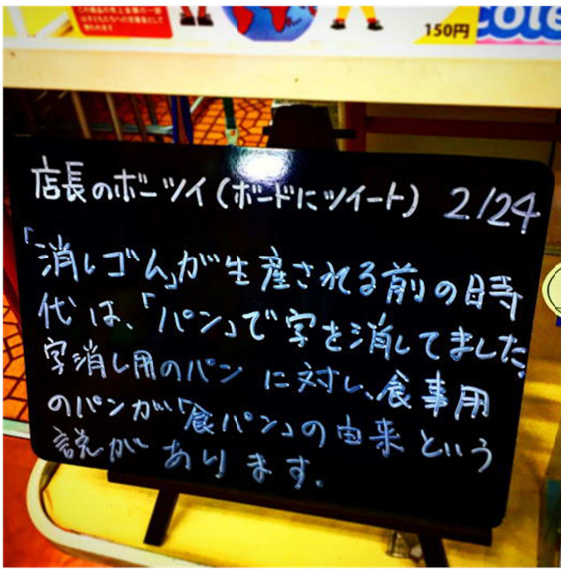 150円
店長のボーツイ(ボードにツイート) 2/24
「消しゴム」が生産される前の時
代は、「パン」で字を消してました。
字消し用のパン に対し、食事用
のパンが「食パン」の由来 という
説が あります.